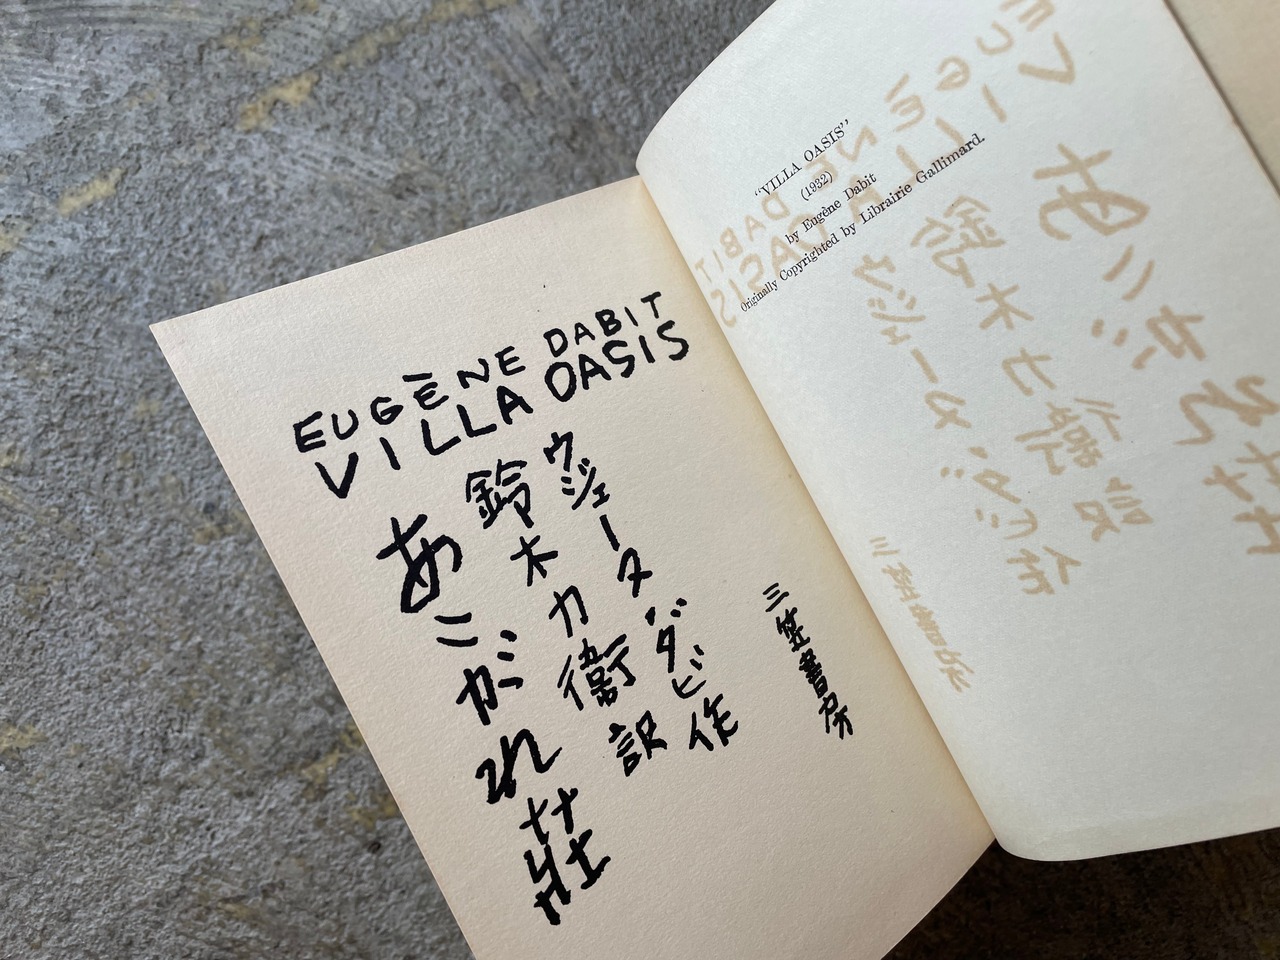 EUGÈNE DABIT
VILLA OASIS
ウジェーヌ・ダビ作
鈴木力衛訳
あこがれ荘
三笠書房
“VILLA OASIS”
(1932)
by Eugène Dabit
Originally Copyrighted by Librairie Gallimard.